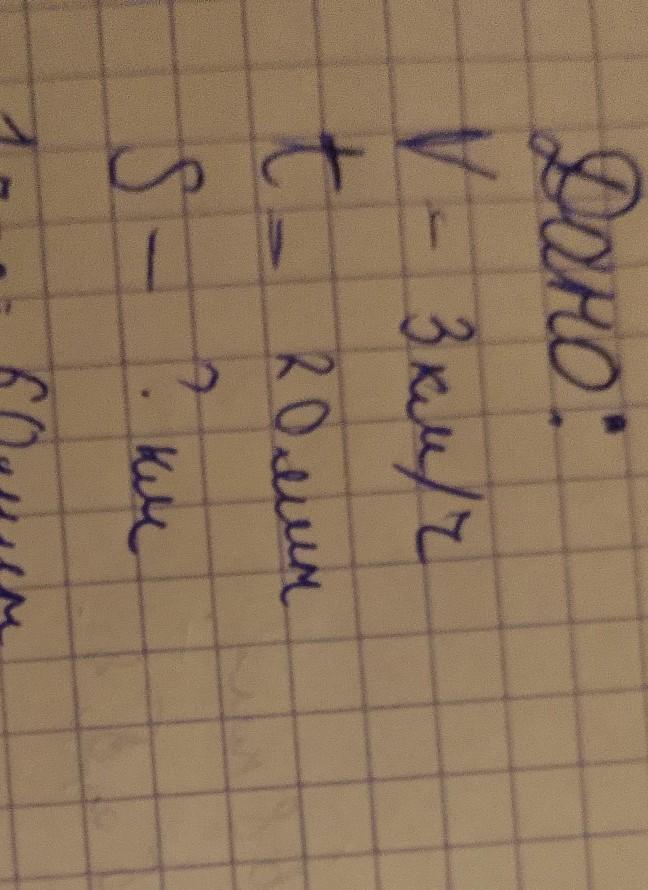 Дано:
V - 3 км/ч
t = 20 мин
S - ? км
60 мин